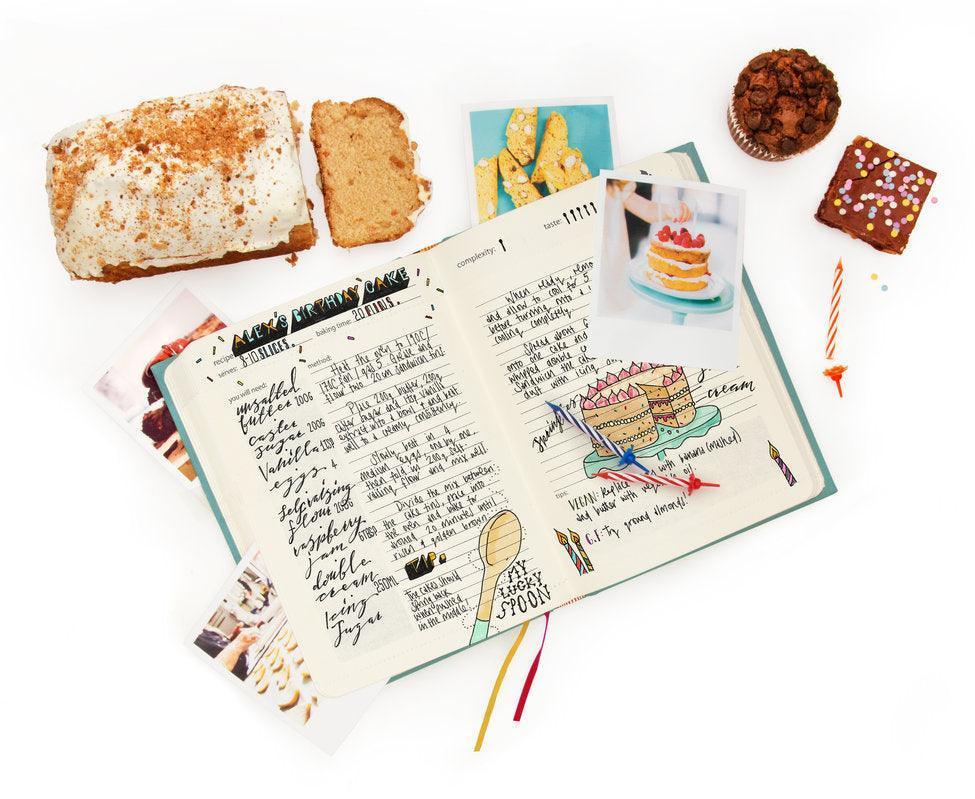 ALEX'S BIRTHDAY CAKE
recipe
serves: 8-10 SLICES.
baking time: 20 MINS.
you will need:
unsalted
butter 200G
caster
sugar 200G
Vanilla 1TSP
eggs 4
selfraising
flour 200G
raspberry
jam 6TBSP
double
cream 250ML
Icing
Sugar
method:
Heat the oven to 190C/
170C fan/ gas 5. Grease and
flour two 20cm sandwich tins.
Place 200g butter, 200g
caster sugar and 1tsp vanilla
extract into a bowl and beat
well to a creamy consistency.
Slowly beat in 4
medium eggs, one by one.
then fold in 200g self-
raising flour and mix well.
Divide the mix between
the cake tins, place into
the oven and bake for
around 20 minutes until
risen & golden brown
TIP:
The cakes should
spring back
when pushed
in the middle
MY
LUCKY
SPOON
complexity:
taste:
When ready, remo
and allow to cool for 5
before turning onto a
cooling completely.
Spread about 6
onto one cake
whipped double c
Sandwich the
dust with icing
cream
tips:
VEGAN: Replace with banana (mashed)
and butter with vegetable oil.
G.F: Try ground almonds!